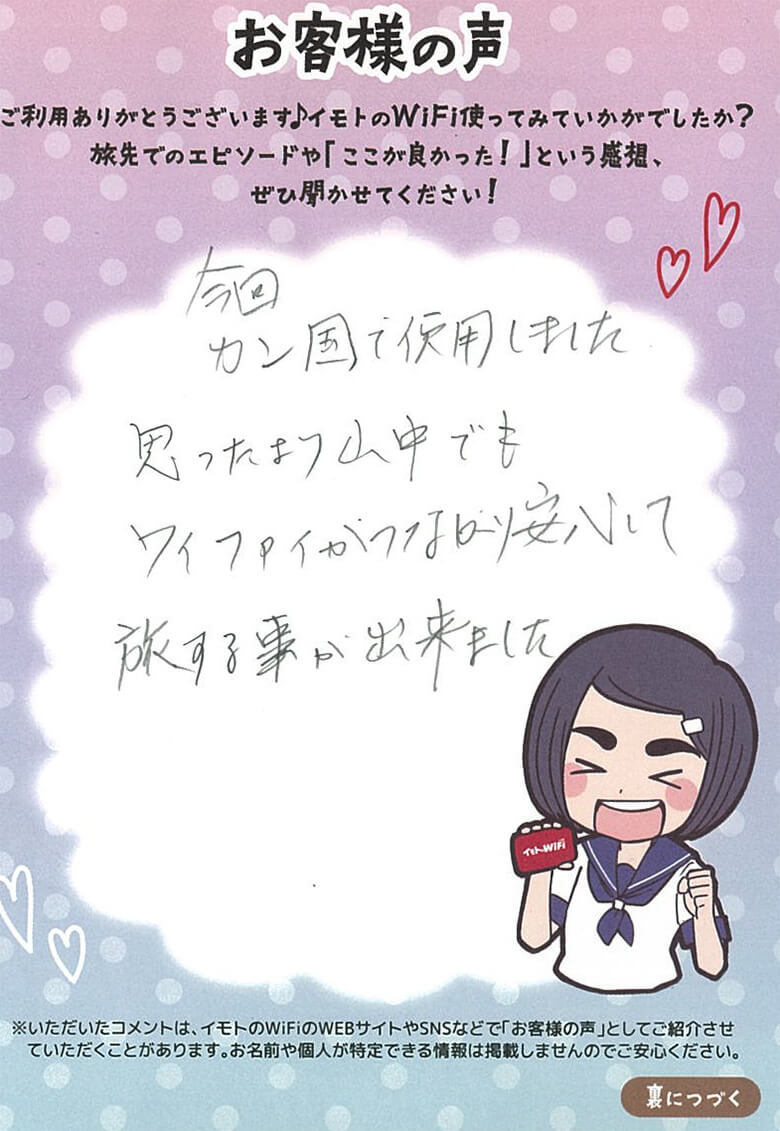 お客様の声
ご利用ありがとうございます♪イモトのWiFi使ってみていかがでしたか?
旅先でのエピソードや「ここが良かった!」という感想、
ぜひ聞かせてください!
今回
カン国で使用しました
思ったより山中でも
ワイファイがつながり安心して
旅する事が出来ました
イモトのWiFi
※いただいたコメントは、イモトのWiFiのWEBサイトやSNSなどで「お客様の声」としてご紹介させ
ていただくことがあります。お名前や個人が特定できる情報は掲載しませんのでご安心ください。
裏につづく